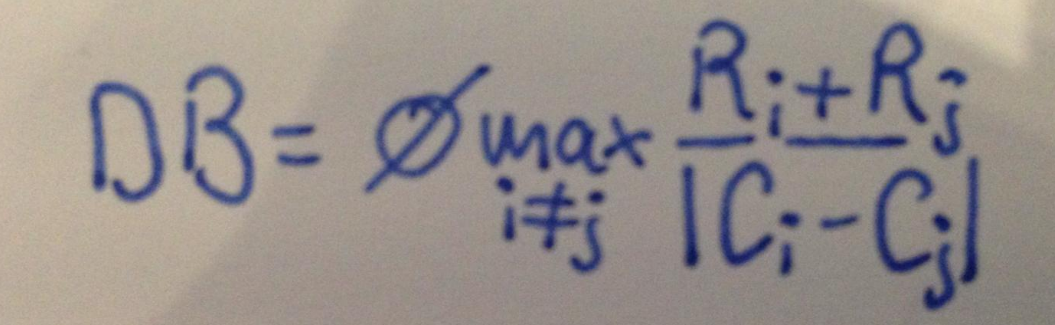 DB = ∅ max i≠j (R_i + R_j) / |C_i - C_j|